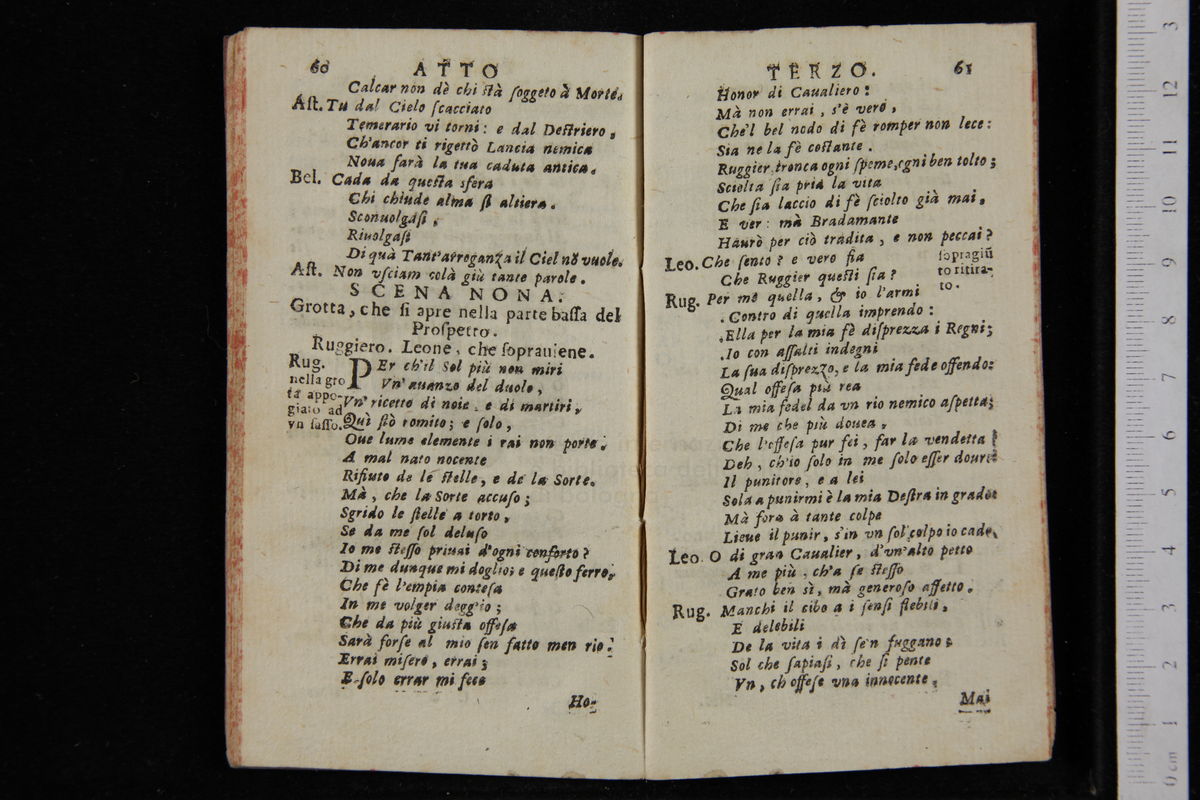 60 ATTO
Calcar non dè chi ſtà ſoggeto à Morte.
Aſt. Tu dal Cielo ſcacciato
Temerario vi torni: e dal Deſtriero,
Ch'ancor ti rigettò Lancia nemica
Noua ſarà la tua caduta antica.
Bel. Cada da queſta sfera
Chi chiude alma ſì altiera.
Sconuolgaſi,
Riuolgaſi
Di quà Tant'arroganza il Ciel nō vuole.
Aſt. Non vſciam colà giù tante parole.
SCENA NONA.
Grotta, che ſi apre nella parte baſſa del
Proſpetto.
Ruggiero. Leone, che ſoprauiene.
Rug. PEr ch'il Sol più non miri
nella gro Vn'auanzo del duolo,
ta appo- Vn'ricetto di noie, e di martiri,
giato ad Quì ſtò romito; e ſolo,
vn ſaſſo.
Oue lume clemente i rai non porte.
A mal nato nocente
Rifiuto de le ſtelle, e de la Sorte.
Mà, che la Sorte accuſo;
Sgrido le ſtelle a torto,
Se da me ſol deluſo
Io me ſteſſo priuai d'ogni conforto?
Di me dunque mi doglio; e queſto ferro,
Che fè l'empia conteſa
In me volger degg'io;
Che da più giuſta offeſa
Sarà forſe al mio ſen fatto men rio.
Errai miſero, errai;
E ſolo errar mi fece
Ho-
TERZO. 61
Honor di Caualiero:
Mà non errai, s'è vero,
Che'l bel nodo di fè romper non lece:
Sia ne la fè coſtante.
Ruggier, tronca ogni ſpeme, ogni ben tolto;
Sciolta ſia pria la vita
Che ſia laccio di fè ſciolto già mai.
E ver: mà Bradamante
Haurò per ciò tradita, e non peccai?
Leo. Che ſento? e vero fia ſopragiū
Che Ruggier queſti ſia? to ritira-
to.
Rug. Per me quella, & io l'armi
Contro di quella imprendo:
Ella per la mia fè diſprezza i Regni;
Io con aſſalti indegni
La ſua diſprezzo, e la mia fede offendo:
Qual offeſa più rea
La mia fedel da vn rio nemico aſpetta;
Di me che più douea,
Che l'offeſa pur fei, far la vendetta
Deh, ch'io ſolo in me ſolo eſſer dourei
Il punitore, e a lei
Sol a punirmi è la mia Deſtra in grado:
Mà fora à tante colpe
Lieue il punir, s'in vn ſol colpo io cado,
Leo. O di gran Caualier, d'vn'alto petto
A me più, ch'a ſe ſteſſo
Grato ben sì, mà generoſo affetto.
Rug. Manchi il cibo a i ſenſi flebili,
E delebili
De la vita i dì ſe'n fuggano;
Sol che ſapiaſi, che ſi pente
Vn, ch offeſe vna innocente,
Mai